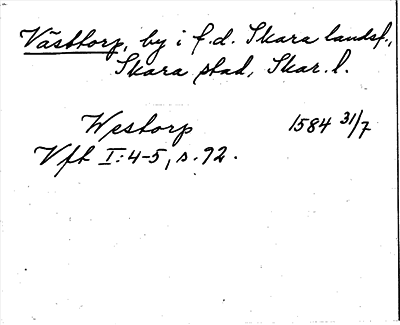 Västtorp, by i f.d. Skara landsf.,
Skara stad, Skar. l.
Westorp 1584 31/7
Vft I:4-5, s. 92.